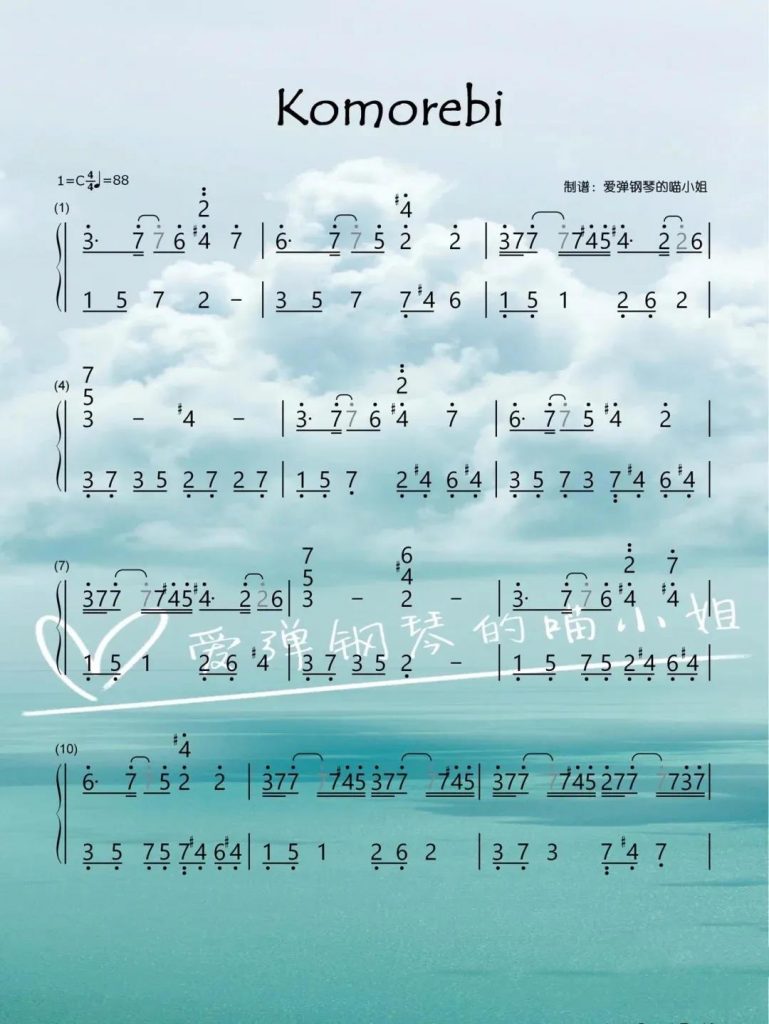 Komorebi
1=C 4/4 ♩=88
制谱：爱弹钢琴的喵小姐
(1)
2 #4
3· 7 7 6 #4 7 | 6· 7 7 5 2 2 | 377 77#45 #4· 2 26
1 5 7 2 – | 3 5 7 7#4 6 | 1 5 1 2 6 2
(4)
7
5 2
3 – #4 – | 3· 7 7 6 #4 7 | 6· 7 7 5 #4 2 |
3 7 3 5 2 7 2 7 | 1 5 7 2#4 6#4 | 3 5 7 3 7#4 6#4 |
(7)
7 #6 2 7
5 4
377 77#45 #4· 2 26 | 3 – 2 – | 3· 7 7 6 #4 #4 |
爱弹钢琴的喵小姐
1 5 1 2 6 #4 | 3 7 3 5 2 – | 1 5 7 5 2#4 6#4 |
(10)
#4
6· 7 7 5 2 2 | 377 7745 377 77#45 | 377 77#45 277 7737 |
3 5 7 5 7#4 6#4 | 1 5 1 2 6 2 | 3 7 3 7#4 7 |